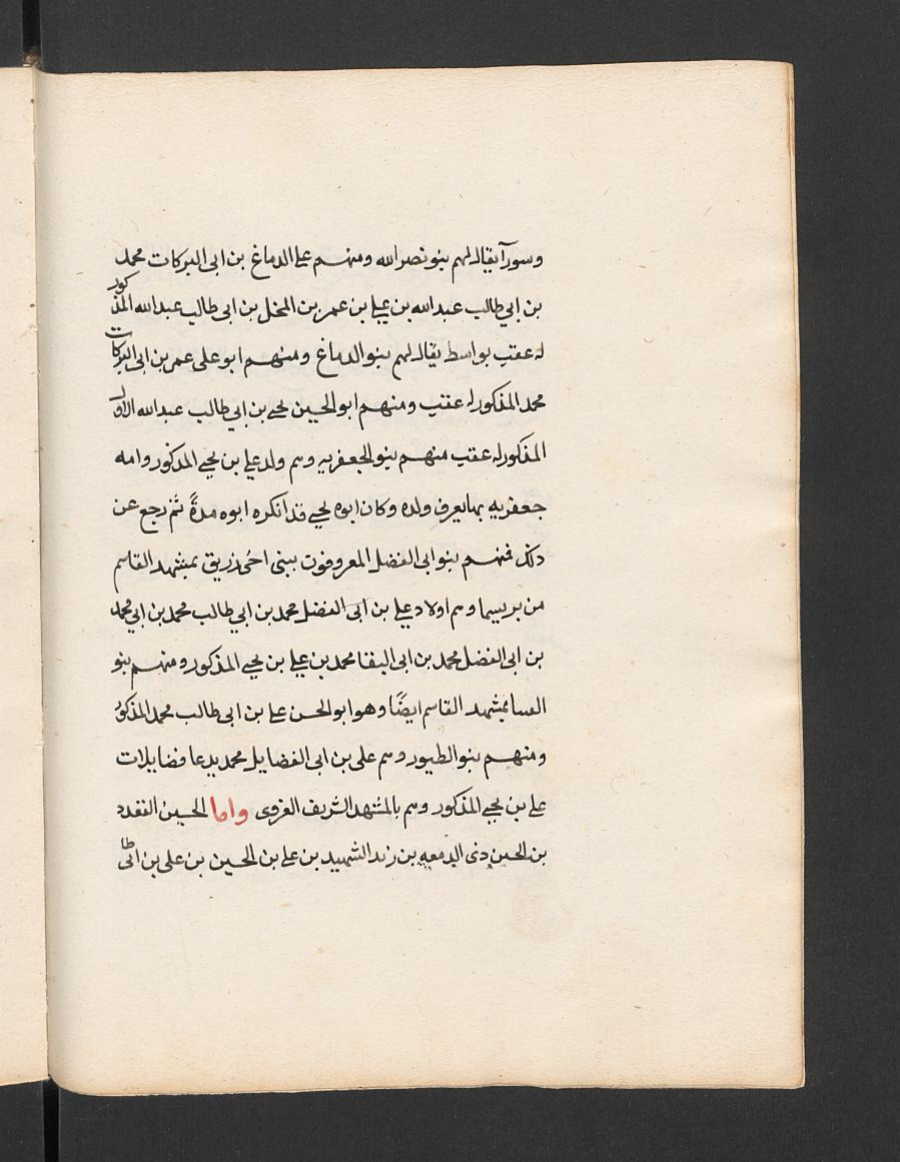 وسورآ يقال لهم بنو نصر الله ومنهم علي الدماغ بن ابى البركات محمد
بن ابي طالب عبدالله بن علي بن عمر بن المخل بن ابى طالب عبدالله المذكور
له عقب بواسط يقال لهم بنو الدماغ ومنهم ابو على عمر بن ابى البركات
محمد المذكور له عقب ومنهم ابو الحسين يحيى بن ابي طالب عبدالله الاول
المذكور له عقب منهم بنو الجعفريه وهم ولد علي بن يحيى المذكور وامه
جعفريه بها يعرف ولده وكان ابوه يحيى قد انكره ابوه مدةً ثم رجع عن
ذلك فمنهم بنو ابى الفضل المعروفون ببنى احى زريق بمشهد القاسم
من بريسما وهم اولاد علي بن ابى الفضل محمد بن ابي طالب محمد بن ابي محمد
بن ابى الفضل محمد بن ابى البقا محمد بن علي بن يحيى المذكور ومنهم بنو
بمشهد القاسم ايضًا وهو ابو الحسن على بن ابى طالب محمد المذكور
ومنهم بنو الطيور وهم على بن ابى الفضايل محمد يدعا فضايلات
علي بن يحيى المذكور وهم بالمشهد الشريف الغروى واما الحسين القعدد
بن الحسين ذى الدمعه بن زيد الشهيد بن على بن الحسين بن على بن ابى طا